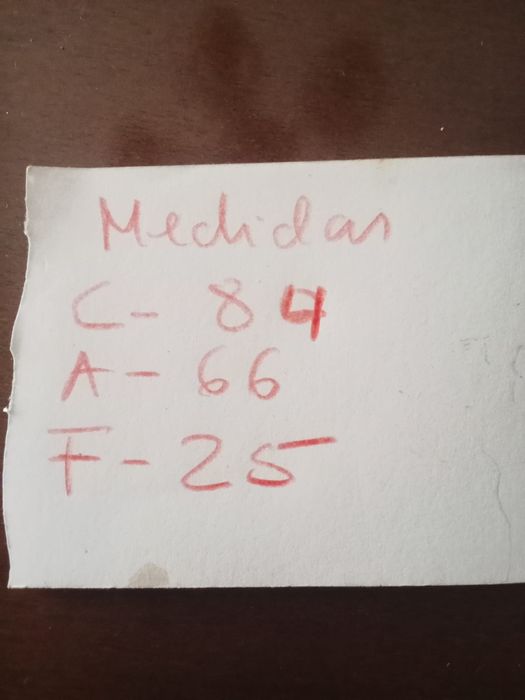 Medidas
C - 84
A - 66
F - 25